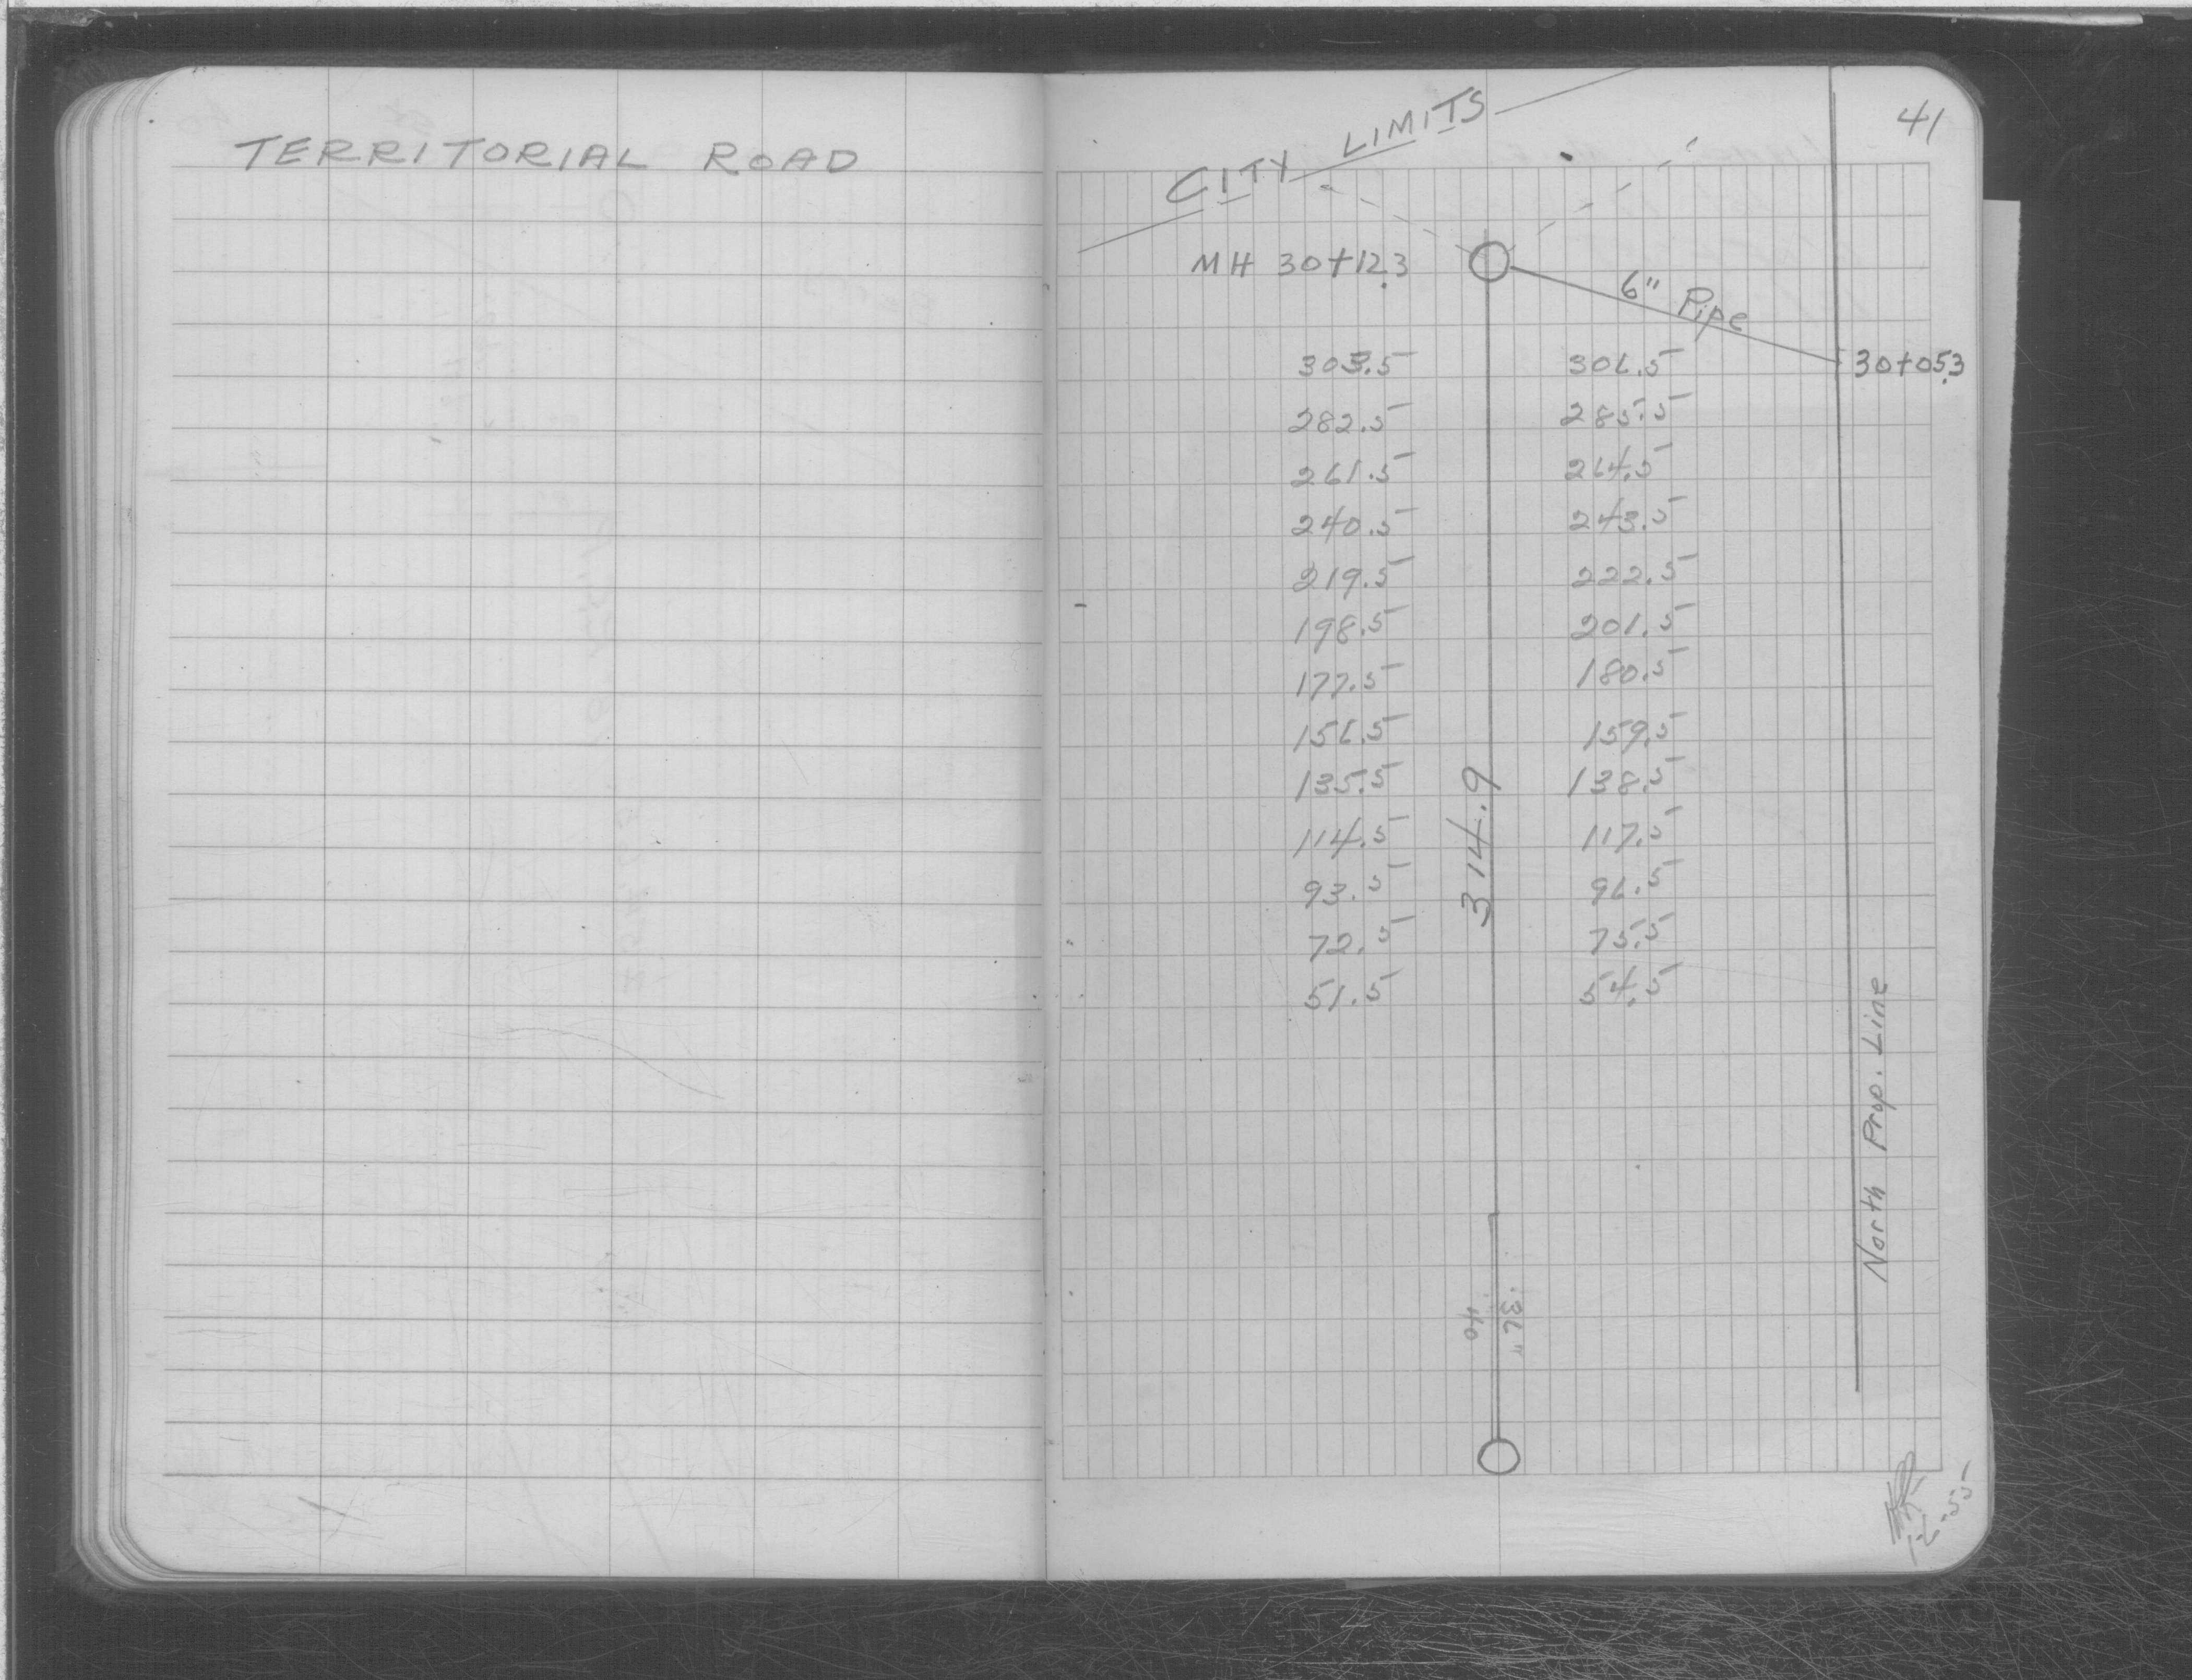 TERRITORIAL ROAD
41
CITY LIMITS
MH 30+12.3
6" Pipe
30+05.3
303.5 306.5
282.5 285.5
261.5 264.5
240.5 243.5
219.5 222.5
198.5 201.5
177.5 180.5
156.5 159.5
135.5 138.5
114.5 117.5
93.5 96.5
72.5 75.5
51.5 54.5
314.9
North Prop. Line
36"